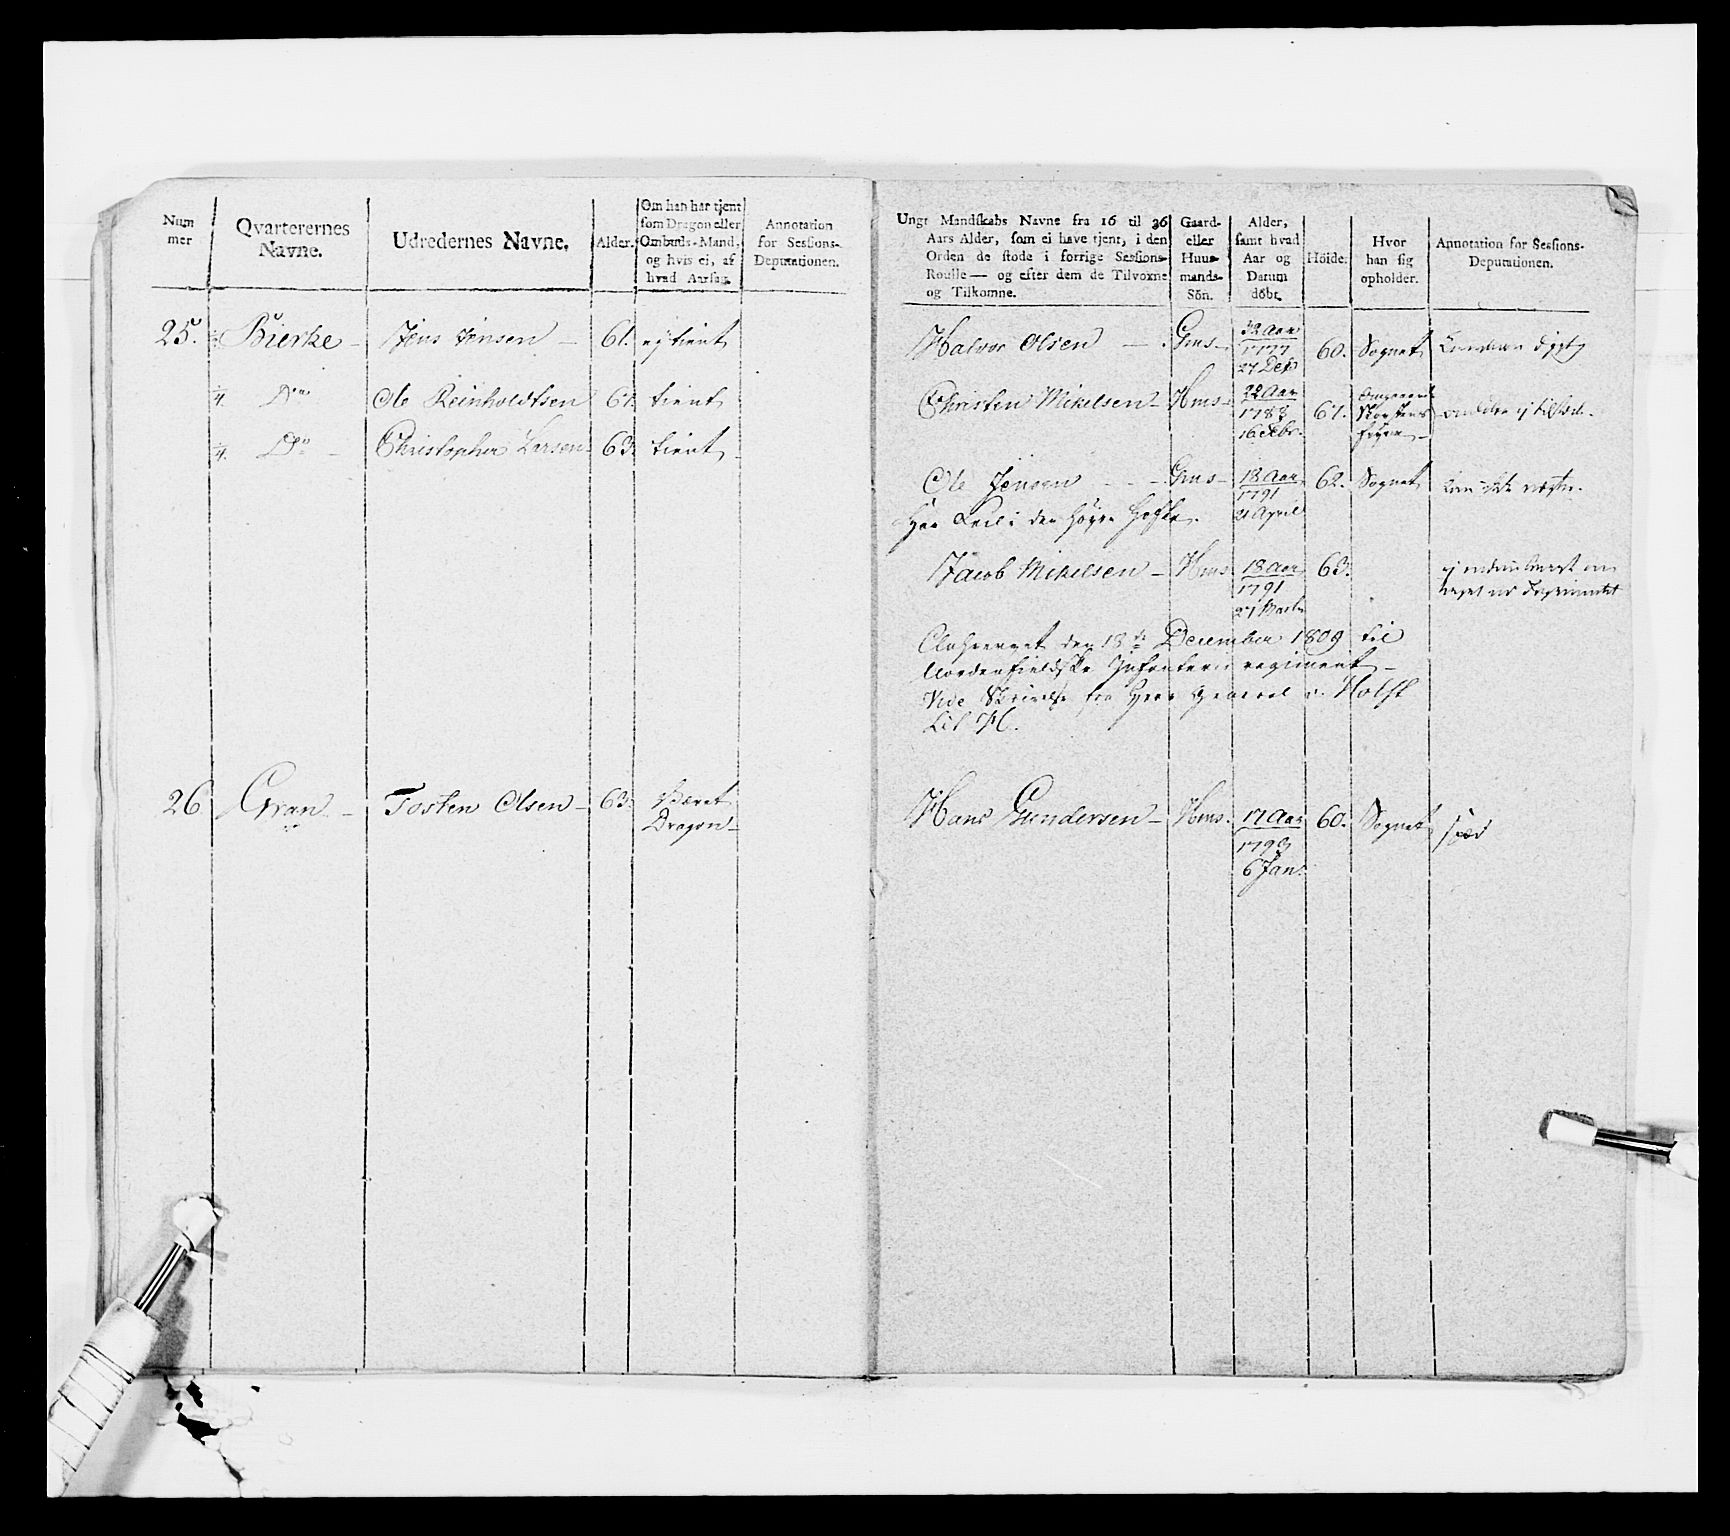 Num
mer
Qvarterernes
Navne.
Udredernes Navne.
Alder.
Om han har tjent
som Dragon eller
Ombuds-Mand,
og hvis ei, af
hvad Aarsag.
Annotation
for Sessions-
Deputationen.
25. Bierke - Jens Jensen - 61. ej tient
¼. Do Ole Reinholdtsen 61. tient
¼. Do - Christopher Larsen 63. tient
26 Gran. - Tosten Olsen - 63. Været
Dragon -
Ungt Mandskabs Navne fra 16 til 36
Aars Alder, som ei have tjent, i den
Orden de stode i forrige Sessions-
Roulle — og efter dem de Tilvoxne
og Tilkomne.
Gaard-
eller
Huus-
mands-
Sön.
Alder,
samt hvad
Aar og
Datum
döbt.
Höide.
Hvor
han sig
opholder.
Annotation for Sessions-
Deputationen.
Halvor Olsen - Gms - 32 Aar 60. Sognet
1777
27 Dec
Christen Mikelsen - Hms - 22 Aar 61.
1788
16 Febr.
Ole Jensen - - Gms - 18 Aar 62. Sognet
1791
21 April
Har Feil i den høyre
Jacob Mikelsen - Hms 18 Aar 63.
1791
27 Marts
den 18de December 1809 til
Nordenfieldske Infanterie regiment -
Vide Skrivelse fra Herr General v. Holst
Lit H.
Hans Gundersen - Hms. 17 Aar 60. Sognet
1793
6 Jan.